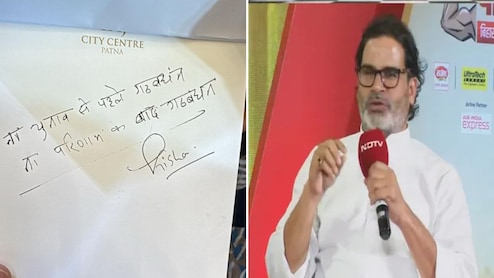 CITY CENTRE
PATNA
ना चुनाव से पहले गठबंधन
ना परिणाम के बाद गठबंधन
NDTV
UltraTech
CEMENT
Airline Partner
AIR INDIA
express